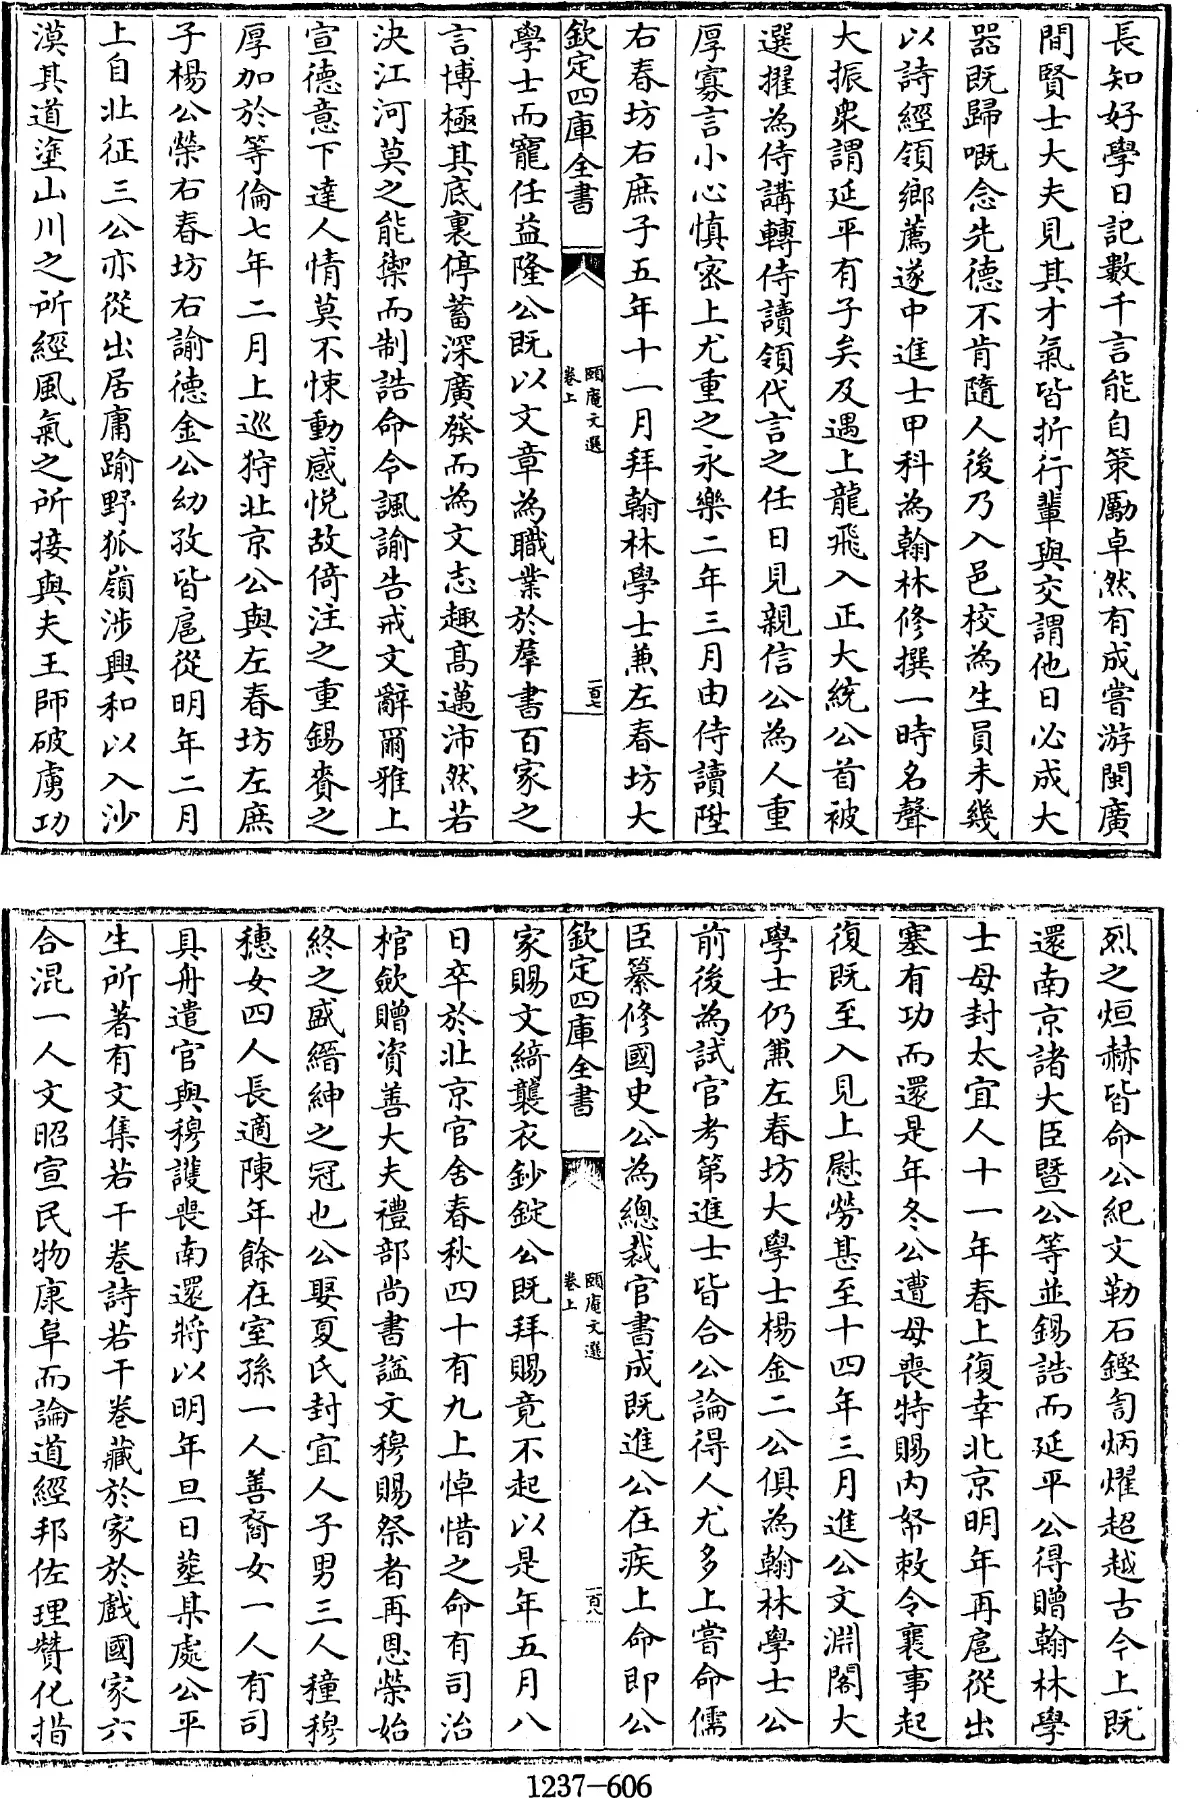 長知好學日記數千言能自策勵卓然有成嘗游閩廣
間賢士大夫見其才氣皆折行輩與交謂他日必成大
器既歸嘅念先德不肯隨人後乃入邑校為生員未幾
以詩經領鄉薦遂中進士甲科為翰林修撰一時名聲
大振衆謂延平有子矣及遇上龍飛入正大統公首被
選擢為侍講轉侍讀領代言之任日見親信公為人重
厚寡言小心慎宻上尤重之永樂二年三月由侍讀陞
右春坊右庶子五年十一月拜翰林學士兼左春坊大
欽定四庫全書
頤庵文選
卷上
一百七
學士而寵任益隆公既以文章為職業於羣書百家之
言博極其底裏停蓄深廣發而為文志趣高邁沛然若
決江河莫之能禦而制誥命令諷諭告戒文辭爾雅上
宣德意下達人情莫不悚動感悦故倚注之重錫賚之
厚加於等倫七年二月上巡狩北京公與左春坊左庶
子楊公榮右春坊右諭德金公幼孜皆扈從明年二月
上自北征三公亦從出居庸踰野狐嶺涉興和以入沙
漠其道塗山川之所經風氣之所接與夫王師破虜功
烈之烜赫皆命公紀文勒石鏗訇炳燿超越古今上既
還南京諸大臣暨公等並錫誥而延平公得贈翰林學
士母封太宜人十一年春上復幸北京明年再扈從出
塞有功而還是年冬公遭母喪特賜内帑敕令襄事起
復既至入見上慰勞甚至十四年三月進公文淵閣大
學士仍兼左春坊大學士楊金二公俱為翰林學士公
前後為試官考第進士皆合公論得人尤多上嘗命儒
臣纂修國史公為總裁官書成既進公在疾上命即公
欽定四庫全書
頤庵文選
卷上
一百八
家賜文綺襲衣鈔錠公既拜賜竟不起以是年五月八
日卒於北京官舍春秋四十有九上悼惜之命有司治
棺斂贈資善大夫禮部尚書諡文穆賜祭者再恩榮始
終之盛縉紳之冠也公娶夏氏封宜人子男三人穜穆
穗女四人長適陳年餘在室孫一人善裔女一人有司
具舟遣官與穆護喪南還將以明年旦日塟某處公平
生所著有文集若干卷詩若干卷藏於家於戲國家六
合混一人文昭宣民物康阜而論道經邦佐理贊化揩
1237-606